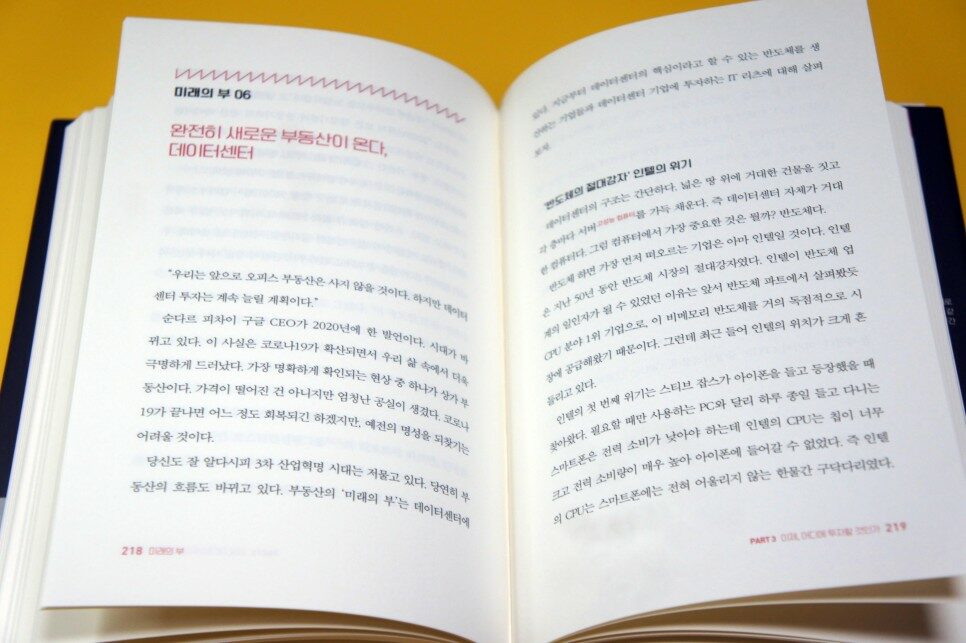 미래의 부 06
완전히 새로운 부동산이 온다,
데이터센터
“우리는 앞으로 오피스 부동산은 사지 않을 것이다. 하지만 데이터
센터 투자는 계속 늘릴 계획이다.”
순다르 피차이 구글 CEO가 2020년에 한 발언이다. 시대가 바
뀌고 있다. 이 사실은 코로나19가 확산되면서 우리 삶 속에서 더욱
극명하게 드러났다. 가장 명확하게 확인되는 현상 중 하나가 상가 부
동산이다. 가격이 떨어진 건 아니지만 엄청난 공실이 생겼다. 코로나
19가 끝나면 어느 정도 회복되긴 하겠지만, 예전의 명성을 되찾기는
어려울 것이다.
당신도 잘 알다시피 3차 산업혁명 시대는 저물고 있다. 당연히 부
동산의 흐름도 바뀌고 있다. 부동산의 ‘미래의 부’는 데이터센터에
218 미래의 부
있다. 지금부터 데이터센터의 핵심이라고 할 수 있는 반도체를 생
산하는 기업들과 데이터센터 기업에 투자하는 IT 리츠에 대해 살펴
보자.
‘반도체의 절대강자’ 인텔의 위기
데이터센터의 구조는 간단하다. 넓은 땅 위에 거대한 건물을 짓고
각 층마다 서버 고성능 컴퓨터를 가득 채운다. 즉 데이터센터 자체가 거대
한 컴퓨터다. 그럼 컴퓨터에서 가장 중요한 것은 뭘까? 반도체다.
반도체 하면 가장 먼저 떠오르는 기업은 아마 인텔일 것이다. 인텔
은 지난 50년 동안 반도체 시장의 절대강자였다. 인텔이 반도체 업
계의 일인자가 될 수 있었던 이유는 앞서 반도체 파트에서 살펴봤듯
CPU 분야 1위 기업으로, 이 비메모리 반도체를 거의 독점적으로 시
장에 공급해왔기 때문이다. 그런데 최근 들어 인텔의 위치가 크게 흔
들리고 있다.
인텔의 첫 번째 위기는 스티브 잡스가 아이폰을 들고 등장했을 때
찾아왔다. 필요할 때만 사용하는 PC와 달리 하루 종일 들고 다니는
스마트폰은 전력 소비가 낮아야 하는데 인텔의 CPU는 칩이 너무
크고 전력 소비량이 매우 높아 아이폰에 들어갈 수 없었다. 즉 인텔
의 CPU는 스마트폰에는 전혀 어울리지 않는 한물간 구닥다리였다.
PART 3 이제, 어디에 투자할 것인가 219